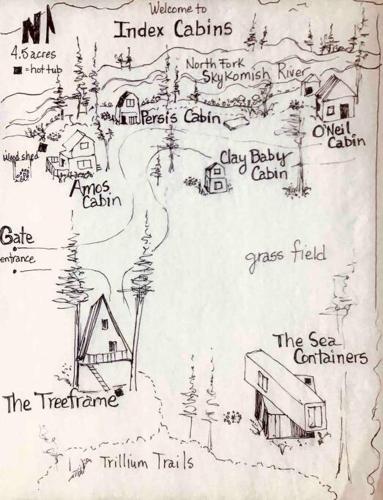 Welcome to
Index Cabins
N
4.5 acres
■ = hot tub
North Fork
Skykomish River
Persis Cabin
O'Neil
Cabin
Wood shed
Clay Baby
Cabin
Amos
Cabin
Gate
entrance
grass field
The Sea
Containers
The Treeframe
Trillium Trails